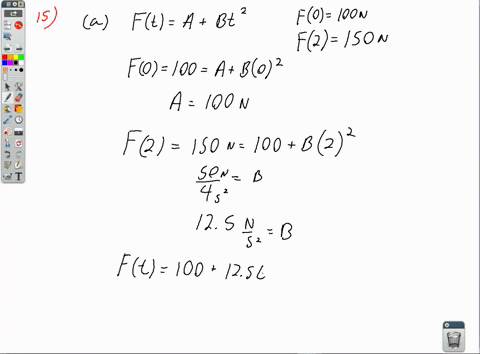 15) (a) F(t) = A + Bt² F(0) = 100 N
F(2) = 150 N
F(0) = 100 = A + B(0)²
A = 100 N
F(2) = 150 N = 100 + B(2)²
50 N / 4 s² = B
12.5 N/s² = B
F(t) = 100 + 12.5t